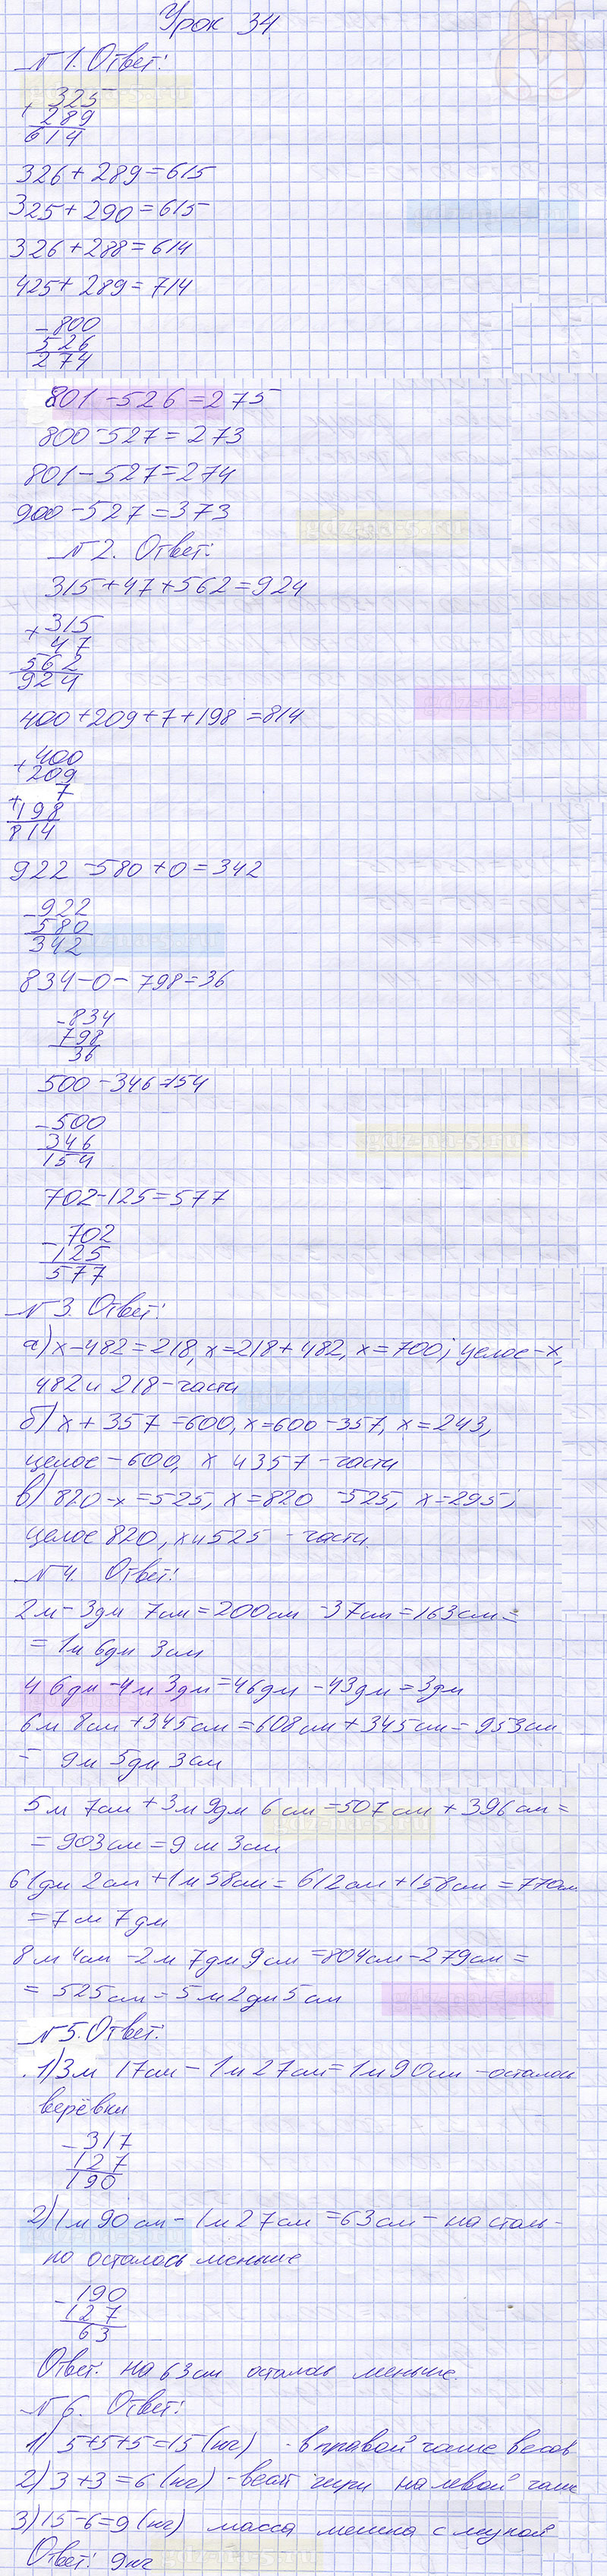 Урок 34
№ 1. Ответ:
+ 325
289
614
326 + 289 = 615
325 + 290 = 615
326 + 288 = 614
425 + 289 = 714
- 800
526
274
801 - 526 = 275
800 - 527 = 273
801 - 527 = 274
900 - 527 = 373
№ 2. Ответ:
315 + 47 + 562 = 924
+ 315
47
562
924
400 + 209 + 7 + 198 = 814
+ 400
209
+ 7
198
814
922 - 580 + 0 = 342
- 922
580
342
834 - 0 - 798 = 36
- 834
798
36
500 - 346 = 154
- 500
346
154
702 - 125 = 577
- 702
125
577
№ 3. Ответ:
а) х - 482 = 218, х = 218 + 482, х = 700; целое - х,
482 и 218 - части
б) х + 357 = 600, х = 600 - 357, х = 243,
целое - 600, х и 357 - части
в) 820 - х = 525, х = 820 - 525, х = 295;
целое 820, х и 525 - части
№ 4. Ответ:
2 м - 3 дм 7 см = 200 см - 37 см = 163 см =
= 1 м 6 дм 3 см
46 дм - 4 м 3 дм = 46 дм - 43 дм = 3 дм
6 м 8 см + 345 см = 608 см + 345 см = 953 см
= 9 м 5 дм 3 см
5 м 7 см + 3 м 9 дм 6 см = 507 см + 396 см =
= 903 см = 9 м 3 см
61 дм 2 см + 1 м 58 см = 612 см + 158 см = 770 см
= 7 м 7 дм
8 м 4 см - 2 м 7 дм 9 см = 804 см - 279 см =
= 525 см = 5 м 2 дм 5 см
№ 5. Ответ:
1) 3 м 17 см - 1 м 27 см = 1 м 90 см - осталось
верёвки
- 317
127
190
2) 1 м 90 см - 1 м 27 см = 63 см - на столь-
ко осталось меньше
- 190
127
63
Ответ: на 63 см осталось меньше.
№ 6. Ответ:
1) 5 + 5 + 5 = 15 (кг) - в правой чаше весов
2) 3 + 3 = 6 (кг) - весят гири на левой чаше
3) 15 - 6 = 9 (кг) масса мешка с мукой
Ответ: 9 кг